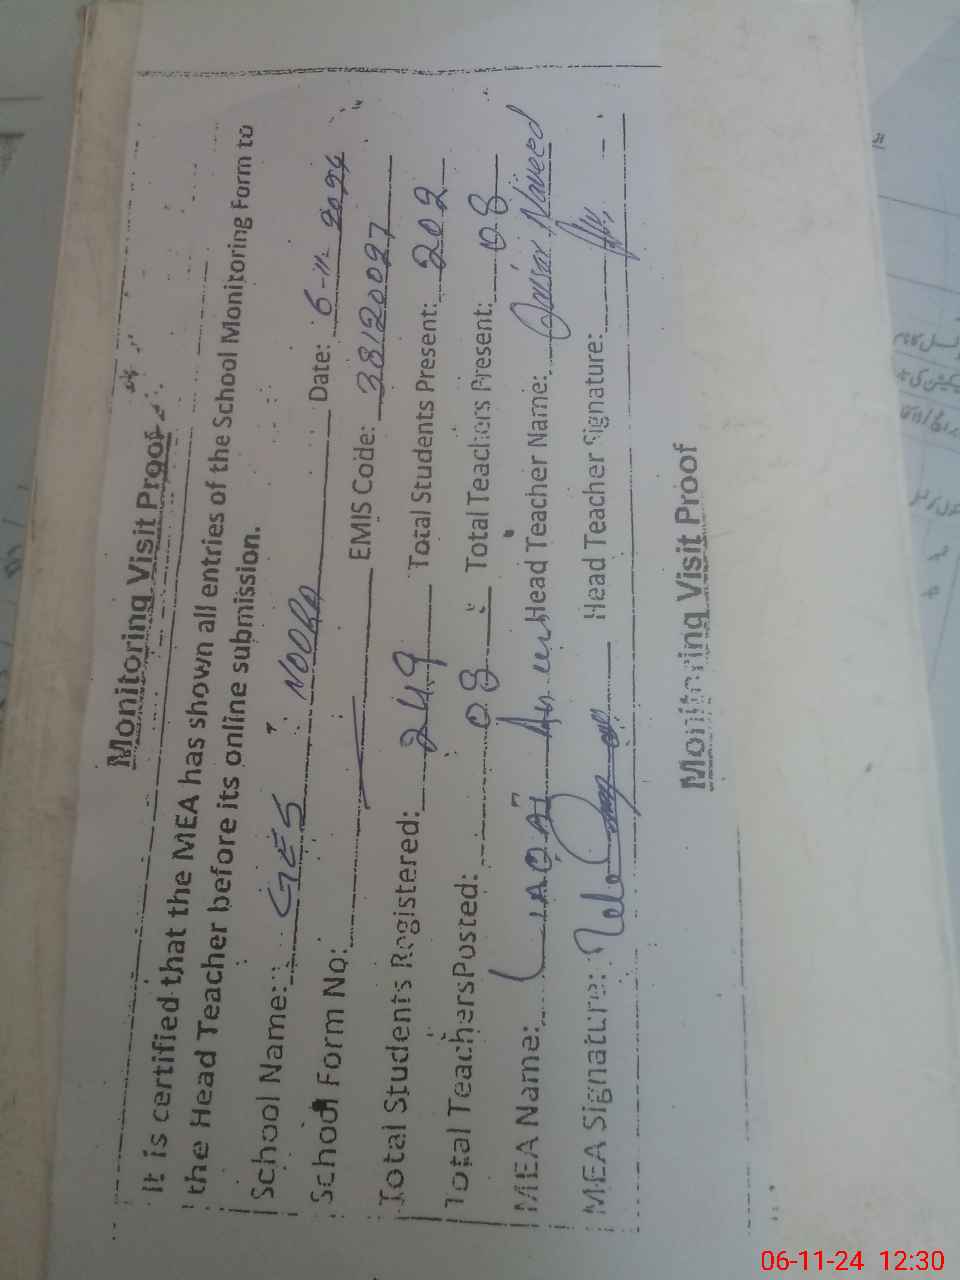 Monitoring Visit Proof
It is certified that the MEA has shown all entries of the School Monitoring Form to
the Head Teacher before its online submission.
School Name: GES NOORA Date: 6-11-2024
School Form No: EMIS Code: 38120097
Total Students Registered: 249 Total Students Present: 202
Total Teachers Posted: 08 Total Teachers Present: 08
MEA Name: LIAQAT Head Teacher Name: Qaisar Naveed
MEA Signature: Head Teacher Signature:
Monitoring Visit Proof
06-11-24 12:30